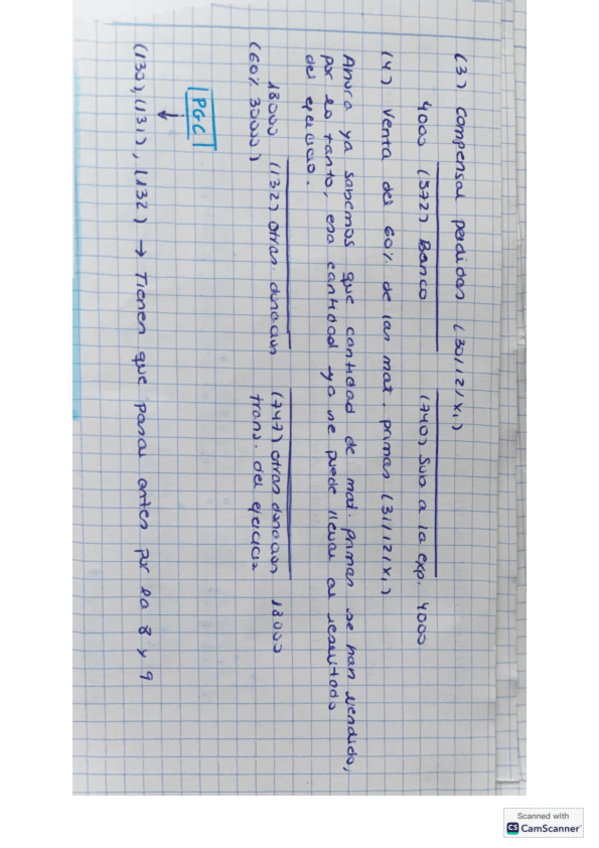 (3) Compensar perdidas (30/12/X1)
4000 (572) Banco (740) Sub a la exp. 4000
(4) Venta del 60% de las mat. primas (31/12/X1)
Ahora ya sabemos que cantidad de mat. primas se han vendido,
por lo tanto, esa cantidad ya se puede llevar al resultado
del ejercicio.
18000 (132) otras donacion (747) otras donacion 18000
(60% 30000) trans. del ejercicio
PGC
(130), (131), (132) → Tienen que pasar antes por la 8 y 9
Scanned with
CS CamScanner